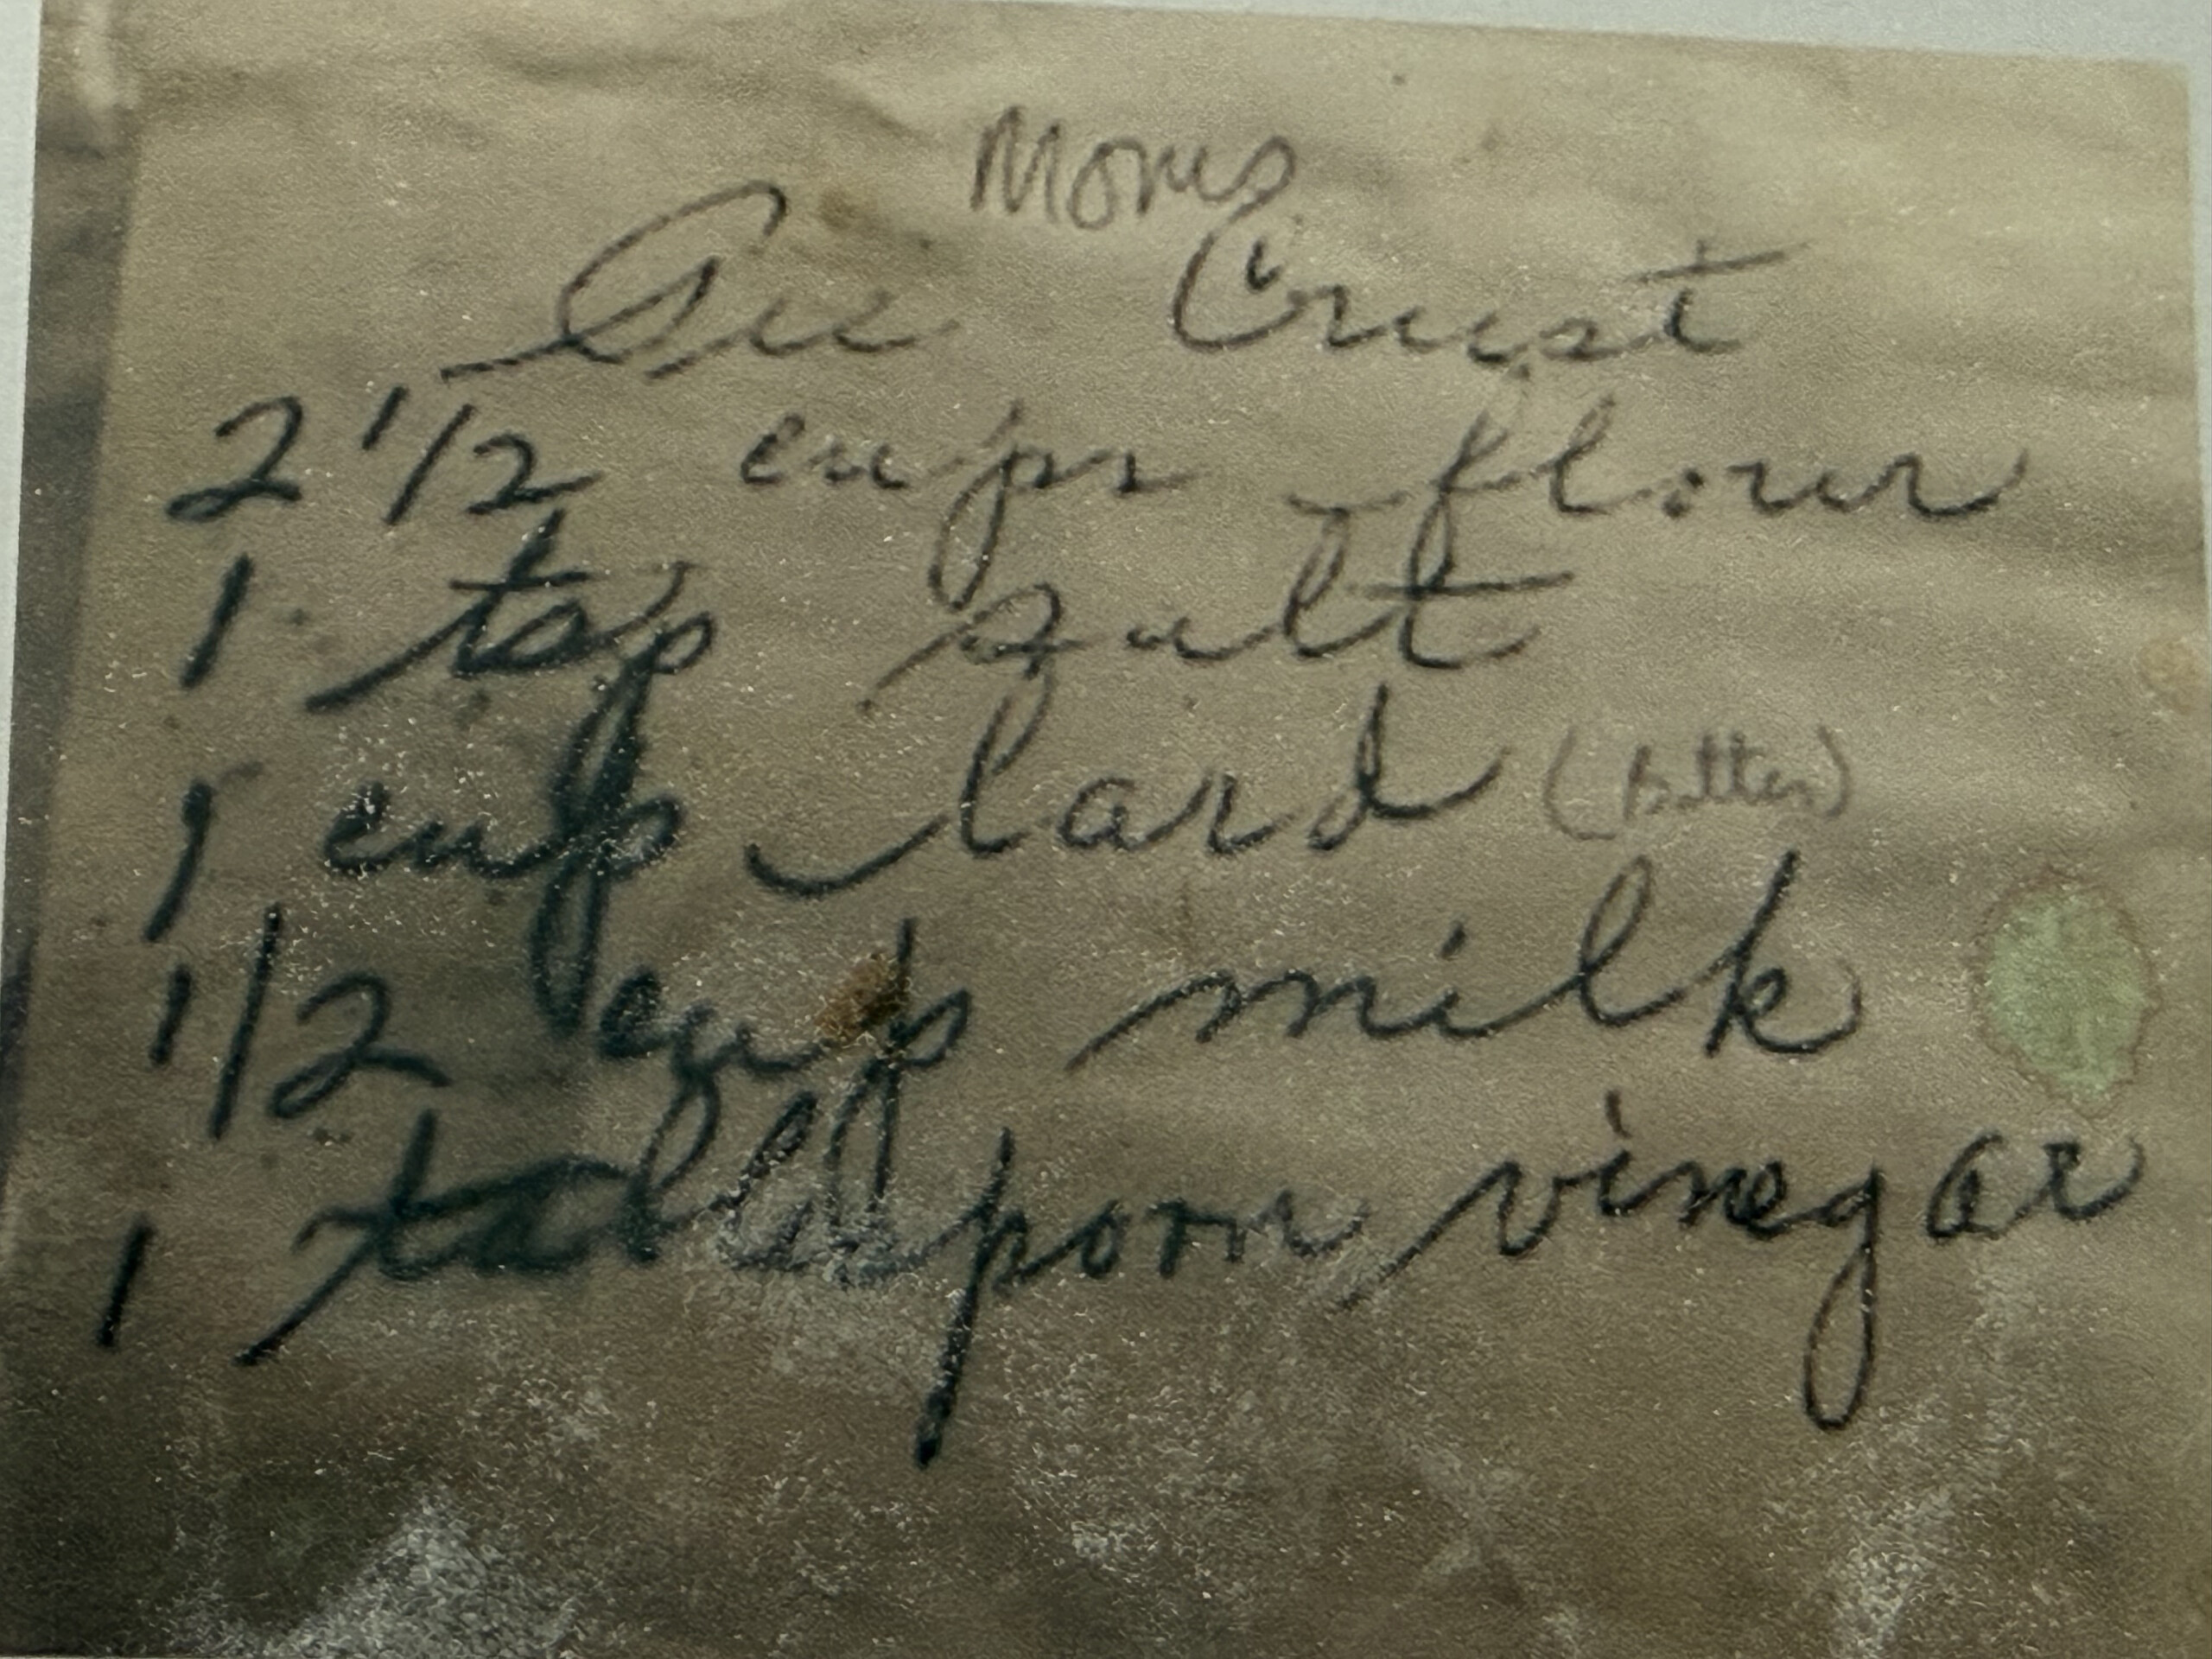 Moms
Pie Crust
2 1/2 cups flour
1 tsp salt
1 cup lard (Butter)
1/2 cup milk
1 tablespoon vinegar